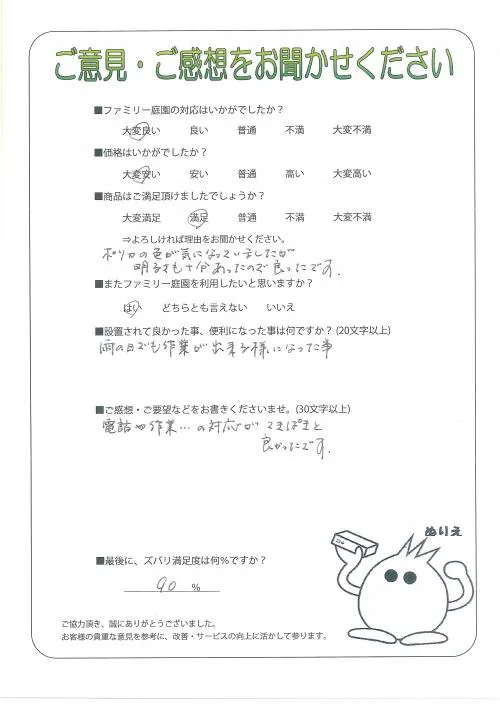 ご意見・ご感想をお聞かせください
■ファミリー庭園の対応はいかがでしたか？
大変良い 良い 普通 不満 大変不満
■価格はいかがでしたか？
大変安い 安い 普通 高い 大変高い
■商品はご満足頂けましたでしょうか？
大変満足 満足 普通 不満 大変不満
⇒よろしければ理由をお聞かせください。
ポリカの色が気になっていましたが
明るさも十分あったので良ったです.
■またファミリー庭園を利用したいと思いますか？
はい どちらとも言えない いいえ
■設置されて良かった事、便利になった事は何ですか？(20文字以上)
雨の日でも作業が出来る様になった事
■ご感想・ご要望などをお書きくださいませ。(30文字以上)
電話や作業…の対応が てきぱきと
良かったです.
ぬりえ
■最後に、ズバリ満足度は何％ですか？
90 %
ご協力頂き、誠にありがとうございました。
お客様の貴重な意見を参考に、改善・サービスの向上に活かして参ります。